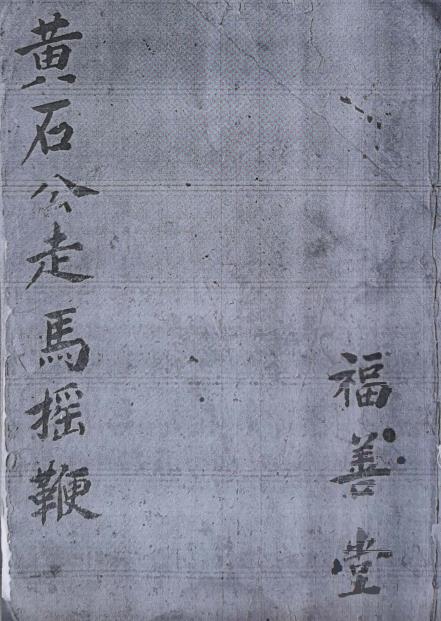 福善堂
黄石公走馬摇鞭